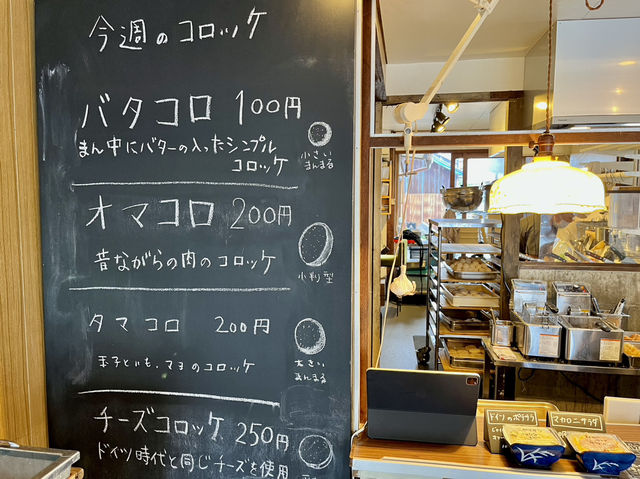 今週のコロッケ
バタコロ 100円
まん中にバターの入ったシンプル
コロッケ
小さい
まんまる
オマコロ 200円
昔ながらの肉のコロッケ
小判型
タマコロ 200円
玉子といも、マヨのコロッケ
大きい
まんまる
チーズコロッケ 250円
ドイツ時代と同じチーズを使用
型
ドイツのポテサラ
マカロニサラダ